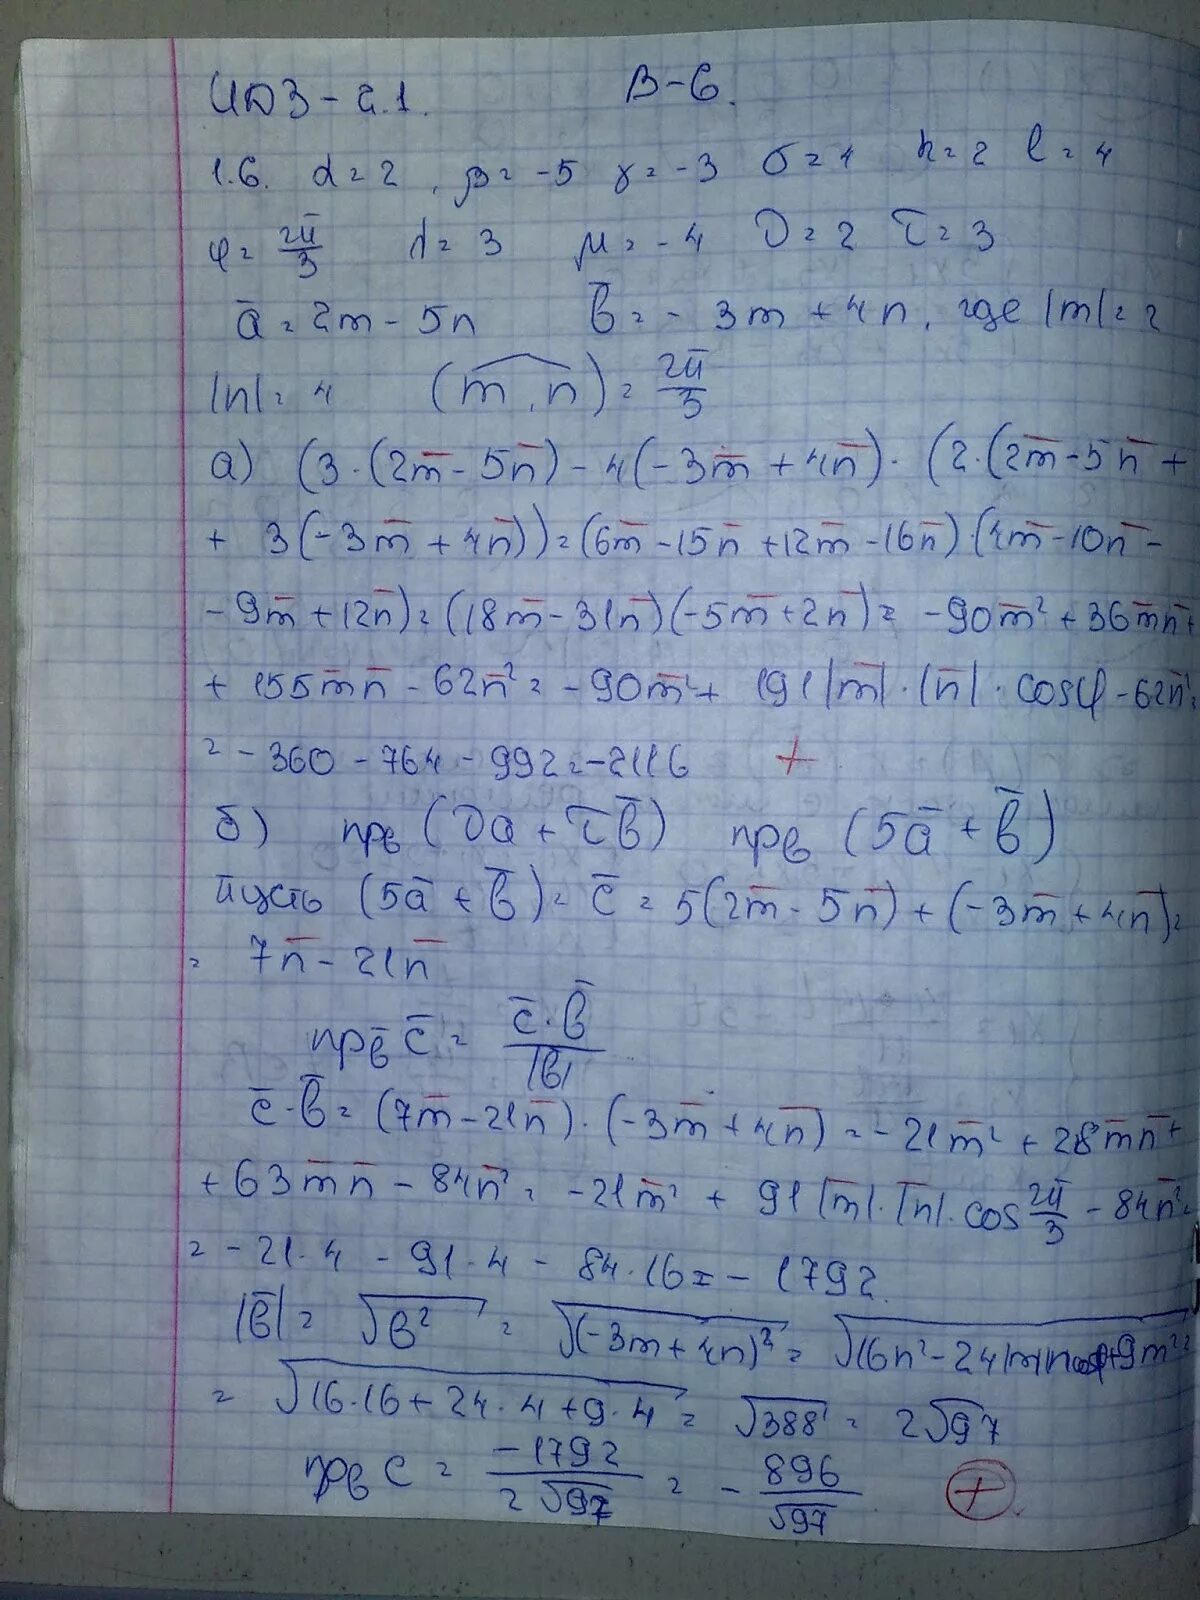 ИДЗ-2.1. В-6.
1.6. α=2, β=-5 γ=-3 σ=4 k=2 l=4
φ=2π/3 λ=3 μ=-4 ν=2 τ=3
a̅=2m-5n b̅=-3m+4n, где |m|=2
|n|=4 (m,n)=2π/3
а) (3·(2m̅-5n̅)-4(-3m̅+4n̅)·(2·(2m̅-5n̅+
+3(-3m̅+4n̅))=(6m̅-15n̅+12m̅-16n̅)(4m̅-10n̅-
-9m̅+12n̅)=(18m̅-31n̅)(-5m̅+2n̅)=-90m̅²+36m̅n̅+
+155m̅n̅-62n̅²=-90m̅²+191|m̅|·|n̅|·cosφ-62n̅²=
=-360-764-992=-2116 +
б) прв(νa+τb̅) прв(5a̅+b̅)
пусть (5a̅+b̅)=c̅=5(2m̅-5n̅)+(-3m̅+4n̅)=
=7n̅-21n̅
прb̅ c̅=c̅·b̅/|b|
c̅·b̅=(7m̅-21n̅)·(-3m̅+4n̅)=-21m̅²+28m̅n̅+
+63m̅n̅-84n̅²=-21m̅²+91|m̅|·|n̅|·cos2π/3-84n̅²=
=-21·4-91·4-84·16=-1792
|b̅|=√b²=√(-3m+4n)²=√16n²-24|m|n cosφ+9m²=
=√16·16+24·4+9·4=√388=2√97
прв c=-1792/2√97=-896/√97 +